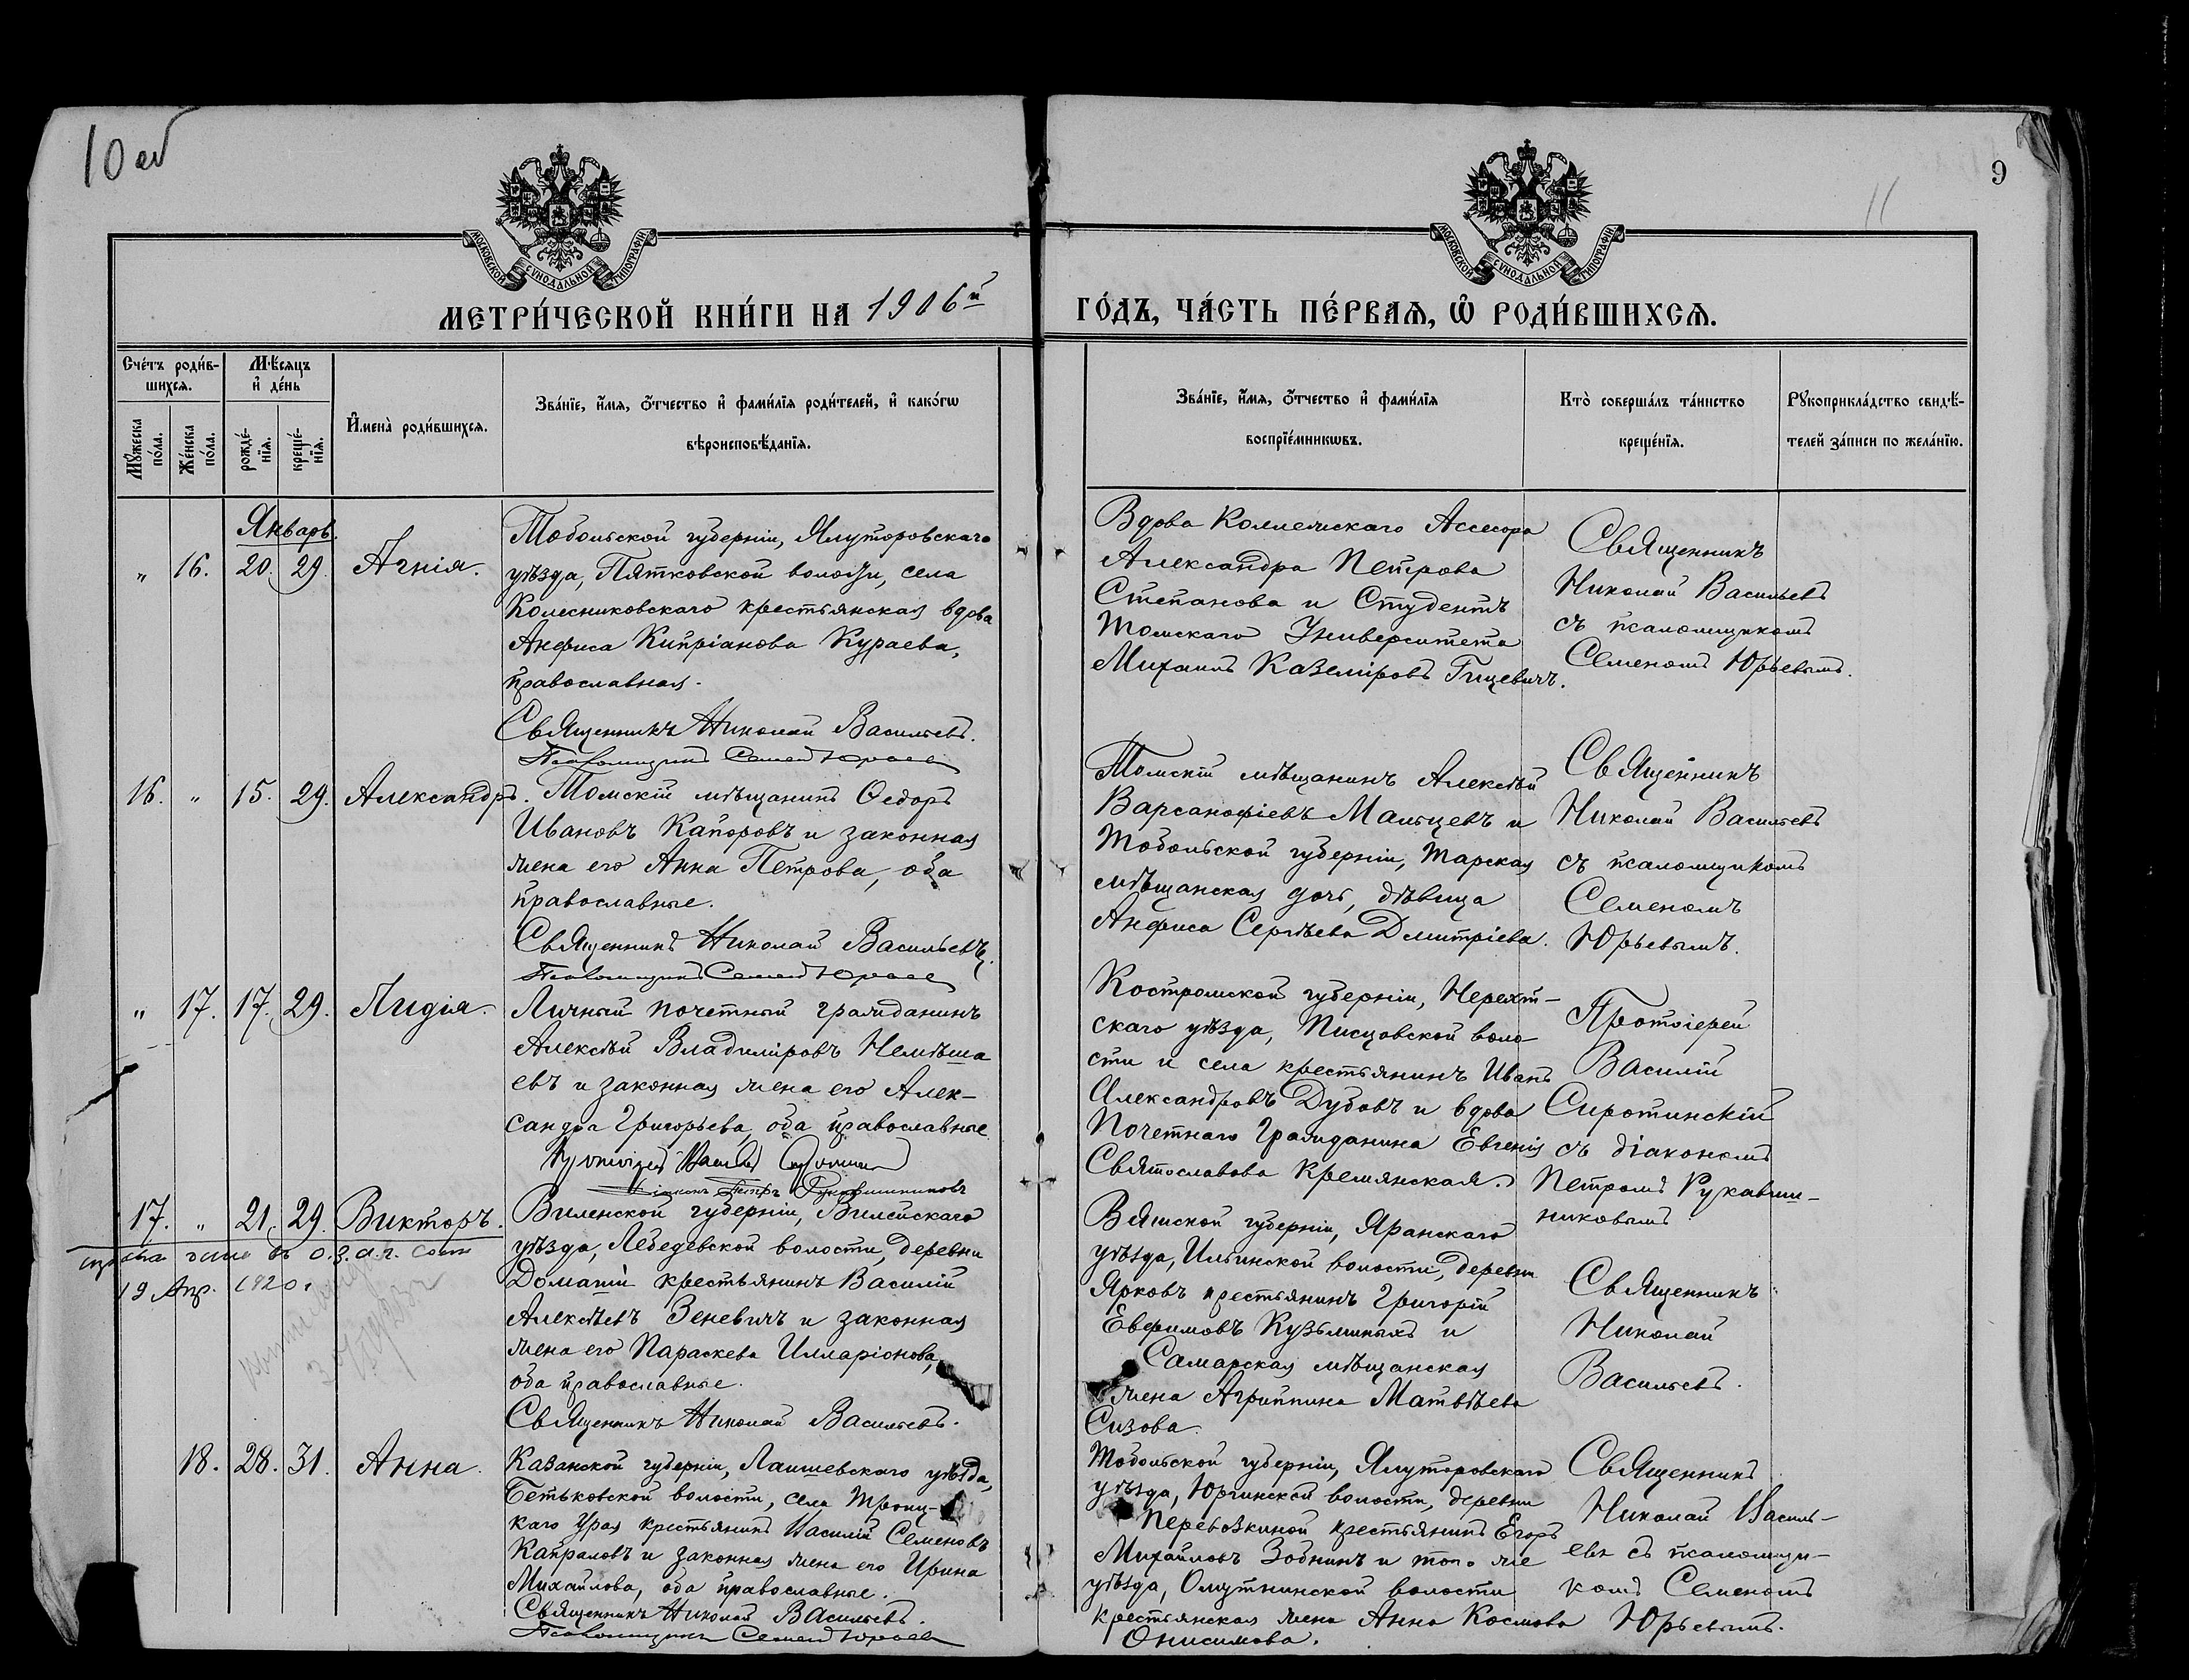 10 об
9
11
МОСКОВСКОЙ СѴНОДАЛЬНОЙ ТИПОГРАФІИ
МОСКОВСКОЙ СѴНОДАЛЬНОЙ ТИПОГРАФІИ
МЕТРИ́ЧЕСКОЙ КНИ́ГИ НА 1906й ГО́ДЪ, ЧА́СТЬ ПЕ́РВАѦ, Ѽ РОДИ́ВШИХСѦ.
Сче́тъ роди́в-
шихсѧ.
Мѣ́сѧцъ
и҆ де́нь
Мꙋ́жеска по́ла.
Же́нска по́ла.
рожде́-
нїѧ.
креще́-
нїѧ.
И҆мена̀ роди́вшихсѧ.
Зва́нїе, и҆́мѧ, ѻ҆́тчество и҆ фами́лїѧ роди́телей, и҆ како́гѡ
вѣроисповѣ́данїѧ.
Зва́нїе, и҆́мѧ, ѻ҆́тчество и҆ фами́лїѧ
воспрїе́мникѡвъ.
Кто̀ соверша́лъ та́инство
креще́нїѧ.
Рꙋкоприкла́дство свидѣ́-
телей за́писи по жела́нїю.
Январь.
„ 16. 20. 29. Агнія.
Тобольской губерніи, Ялуторовскаго
уѣзда, Пятковской волости, села
Колесниковскаго крестьянская вдова
Анфиса Кипріанова Кураева,
православная.
Священникъ Николай Васильевъ.
Псаломщикъ Семен Юрьев
Вдова Коллежскаго Ассесора
Александра Петрова
Степанова и Студентъ
Томскаго Университета
Михаилъ Каземіровъ Гицевичъ.
Священникъ
Николай Васильевъ
съ псаломщикомъ
Семеномъ Юрьевымъ.
16. „ 15. 29. Александръ.
Томскій мѣщанинъ Ѳедоръ
Ивановъ Капоровъ и законная
жена его Анна Петрова, оба
православные.
Священникъ Николай Васильевъ.
Псаломщикъ Семен Юрьев
Томскій мѣщанинъ Алексѣй
Варсанофіевъ Мальцевъ и
Тобольской губерніи, Тарская
мѣщанская дочь, дѣвица
Анфиса Сергѣева Дмитріева.
Священникъ
Николай Васильевъ
съ псаломщикомъ
Семеномъ
Юрьевымъ.
„ 17. 17. 29. Лидія.
Личный почетный гражданинъ
Алексѣй Владиміровъ Немѣша
евъ и законная жена его Алек-
сандра Григорьева, оба православные
Протоіерей Василій Сиротинскій
Діаконъ Петръ Рукавишниковъ
Костромской губерніи, Нерехт-
скаго уѣзда, Писцовской воло
сти и села крестьянинъ Иванъ
Александровъ Дубовъ и вдова
Почетнаго Гражданина Евгенія
Святославова Кремянская.
Протоіерей
Василій
Сиротинскій
съ діакономъ
Петромъ Рукавиш-
никовымъ
17. „ 21. 29. Викторъ.
19 Апр. 1920 г
Виленской губерніи, Вилейскаго
уѣзда, Лебедевской волости, деревни
Домаши крестьянинъ Василій
Алексѣевъ Зеневичъ и законная
жена его Параскева Илларіонова,
оба православные.
Священникъ Николай Васильевъ.
Вятской губерніи, Яранскаго
уѣзда, Ильинской волости, деревни
Ярковъ крестьянинъ Григорій
Евфимовъ Кузьминыхъ и
Самарская мѣщанская
жена Агриппина Матвѣева
Сизова.
Священникъ
Николай
Васильевъ.
18. 28. 31. Анна.
Казанской губерніи, Лаишевскаго уѣзда,
Бетьковской волости, села Троиц-
каго Урая крестьянинъ Василій Семеновъ
Капраловъ и законная жена его Ирина
Михайлова, оба православные.
Священникъ Николай Васильевъ.
Псаломщикъ Семен Юрьев
Тобольской губерніи, Ялуторовскаго
уѣзда, Юргинской волости, деревни
Перевозкиной крестьянинъ Егоръ
Михайловъ Зобнинъ и того же
уѣзда, Омутнинской волости
крестьянская жена Анна Космова
Онисимова.
Священникъ
Николай Василь-
евъ съ псаломщи-
комъ Семеномъ
Юрьевымъ.